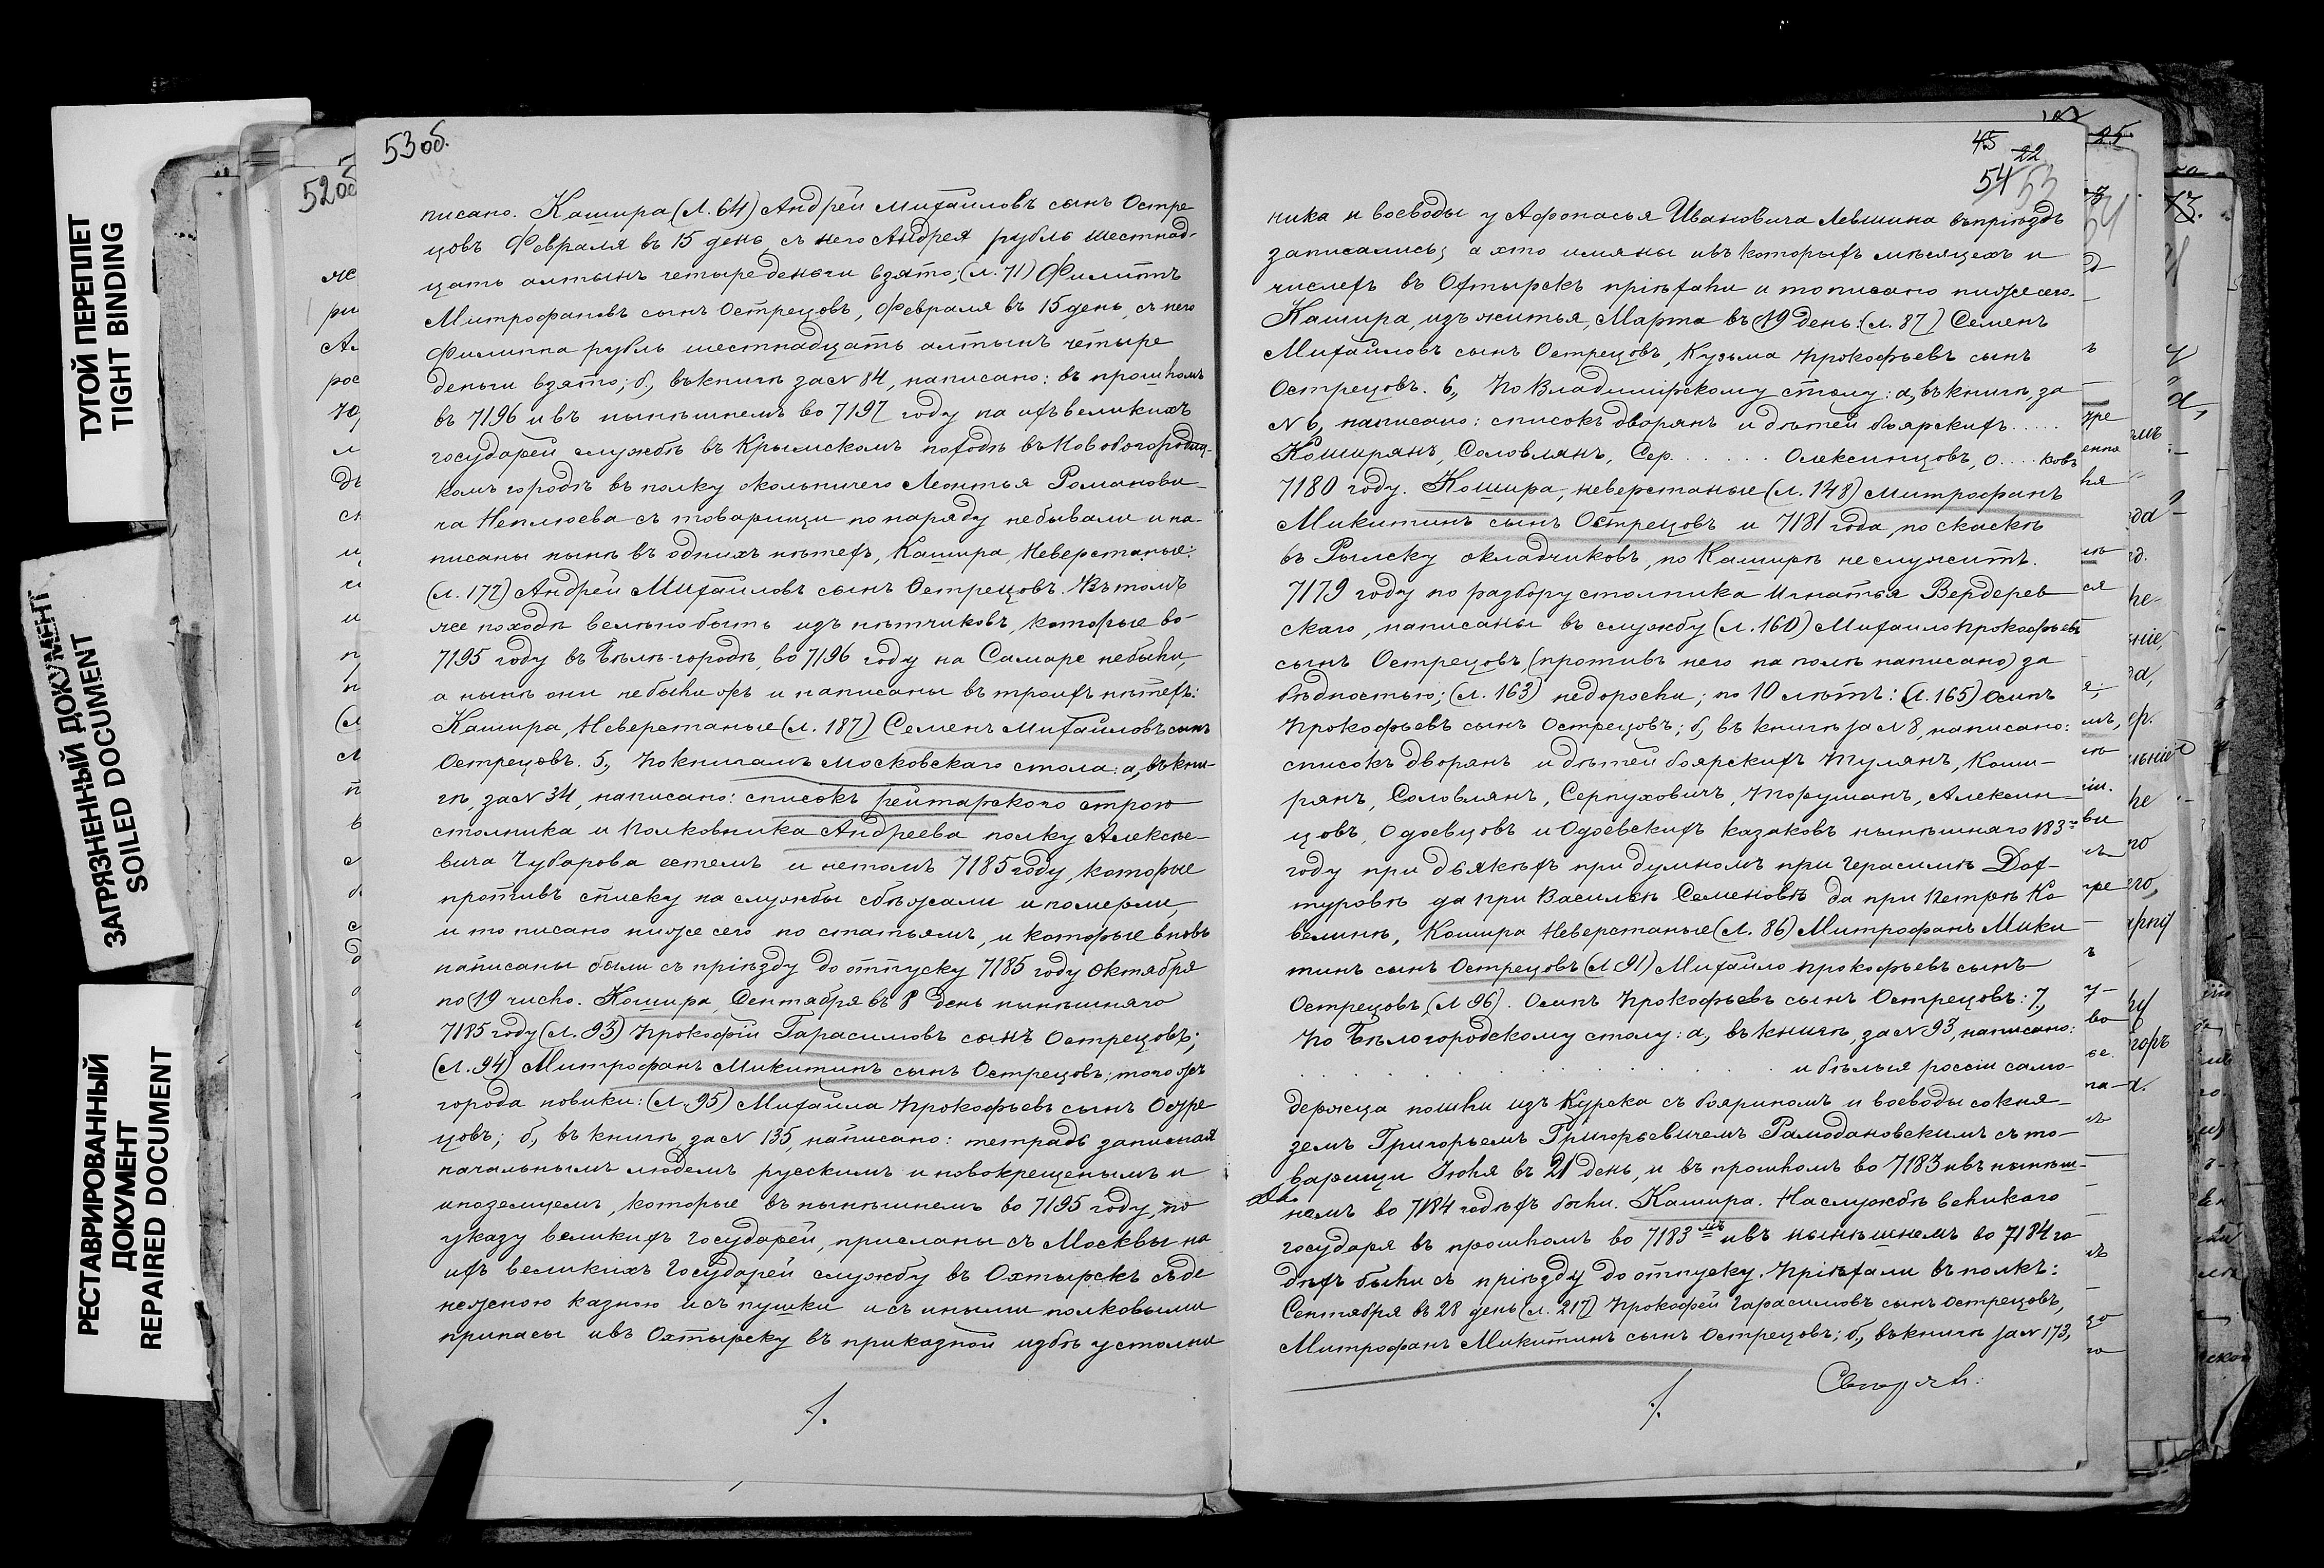 ТУГОЙ ПЕРЕПЛЕТ
TIGHT BINDING
ЗАГРЯЗНЕННЫЙ ДОКУМЕНТ
SOILED DOCUMENT
РЕСТАВРИРОВАННЫЙ
ДОКУМЕНТ
REPAIRED DOCUMENT
52об
53 об.
писано. Кашира (Л. 64) Андрей Михайловъ сынъ Остре
цовъ Февраля въ 15 день, съ него Андрея рубль шестнад-
цать алтынъ четыре деньги взято; (л. 71) Филиппъ
Митрофановъ сынъ Острецовъ, Февраля въ 15 день, съ него
Филиппа рубль шестнадцать алтынъ четыре
деньги взято; б, въ книгѣ за № 84, написано: въ прошломъ
въ 7196 и въ нынѣшнемъ во 7197 году на ихъ великихъ
государей службѣ въ Крымскомъ походѣ въ Новобогородиц-
комъ городѣ въ полку окольничего Леонтья Романови-
ча Неплюева съ товарищи по наряду небывали и на-
писаны нынѣ въ однихъ нѣтехъ, Кашира, Неверстаные:
(л. 172) Андрей Михайловъ сынъ Острецовъ. Въ томъ
же походѣ велѣно быть изъ нѣтчиковъ, которые во
7195 году въ Бѣлѣ-городѣ, во 7196 году на Самаре не были,
а нынѣ они не были жъ и написаны въ троихъ нѣтехъ:
Кашира, Неверстаные (л. 187) Семенъ Михайловъ сынъ
Острецовъ. 5, По книгамъ Московскаго стола: а, въ кни-
гѣ, за № 34, написано: списокъ рейтарского строю
столника и полковника Андреева полку Алексѣе-
вича Чубарова естемъ и нетомъ 7185 году, которые
противъ списку на службы сбѣжали и померли,
и то писано ниже сего по статьямъ, и которые вновь
написаны были съ пріѣзду до отпуску 7185 году Октября
по 19 число. Кашира, Сентября въ 8 день нынѣшняго
7185 году (Л. 93) Прокофій Гарасимовъ сынъ Острецовъ;
(Л. 94) Митрофанъ Микитинъ сынъ Острецовъ; того жъ
города новики: (Л. 95) Михаила Прокофьевъ сынъ Остре
цовъ; б, въ книгѣ за № 135, написано: тетрадь записная
начальнымъ людемъ русскимъ и новокрещенымъ и
иноземцемъ, которые въ нынѣшнемъ во 7195 году, по
указу великихъ государей, присланы съ Москвы на
ихъ великихъ Государей службу въ Охтырскъ съ де
нежною казною и съ пушки и съ иными полковыми
припасы и въ Охтырску въ приказной избѣ у столни
45 22
54 53
ника и воеводы у Афонасья Ивановича Левшина въ пріѣздѣ
записались; а хто имяны и въ которыхъ мѣсяцехъ и
числехъ въ Охтырскъ пріѣхали и то писано ниже сего.
Кашира, изъ житья, Марта въ 19 день: (л. 87) Семенъ
Михайловъ сынъ Острецовъ, Кузьма Прокофьевъ сынъ
Острецовъ. 6, По Владимирскому столу: а, въ книгѣ, за
№ 6, написано: списокъ дворянъ и дѣтей боярскихъ .....
Коширянъ, Соловлянъ, Сер. . . . . . Олексинцовъ, О.... ковъ
7180 году. Кошира, неверстаные (Л. 148) Митрофанъ
Микитинъ сынъ Острецовъ и 7181 года, по сказкѣ
въ Рылску окладчиковъ, по Каширѣ не служитъ.
7179 году по разбору столника Игнатья Вердерев
скаго, написаны въ службу (л. 160) Михаило Прокофьевъ
сынъ Острецовъ, (противъ него на полѣ написано) за
бѣдностью; (л. 163) недоросли; по 10 лѣтъ: (Л. 165) Осипъ
Прокофьевъ сынъ Острецовъ; б, въ книгѣ за № 8, написано:
списокъ дворянъ и дѣтей боярскихъ Тулянъ, Коши-
рянъ, Соловлянъ, Серпуховичъ, Торушанъ, Алексин-
цовъ, Одоевцовъ и Одоевскихъ казаковъ нынѣшняго 183го
году при дьякѣхъ при думномъ при Герасимѣ Дох-
туровѣ да при Васильѣ Семеновѣ да при Петрѣ Ко
велинѣ, Кошира Неверстаные (Л. 86) Митрофанъ Мики
тинъ сынъ Острецовъ (Л 91) Михайло Прокофьевъ сынъ
Острецовъ, (Л 96). Осипъ Прокофьевъ сынъ Острецовъ: 7,
По Бѣлогородскому столу: а, въ книгѣ, за № 93, написано:
. . . . . . . . . . и бѣлыя россіи само-
держца пошли изъ Курска съ бояриномъ и воеводы со кня-
земъ Григорьемъ Григорьевичемъ Рамодановскимъ съ то-
варищи Іюля въ 21 день, и въ прошломъ во 7183 и въ нынѣш-
немъ во 7184 годѣхъ были. Кашира. На службѣ великого
государя въ прошломъ во 7183мъ и въ нынѣшнемъ во 7184 го
дѣхъ были съ пріѣзду до отпуску. Пріѣхали въ полкъ:
Сентября въ 28 день (л. 217) Прокофей Гарасимовъ сынъ Острецовъ,
Митрофанъ Микитинъ сынъ Острецовъ; б, въ книгѣ за № 173,